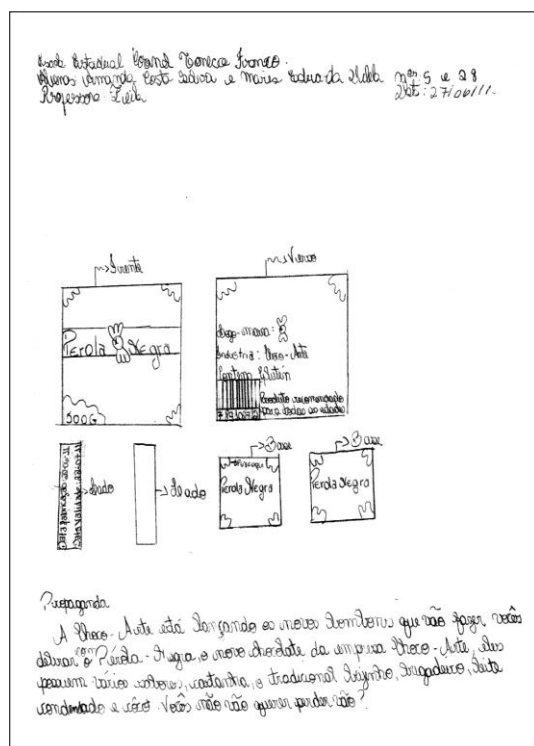 Escola Estadual Coronel Tonico Franco.
Alunas Amanda Costa Silva e Maria Eduarda nºs: 5 e 28
Professora: Leila Dat: 27/06/11.
Frente
Verso
Perola Negra
500G
Logo-marca:
Industria: Choco-Arte
Contem Glutein
Produto recomendado
para todas as idades
Data Fabricação
Data Validade
Lado
Lado
Base
Base
Perola Negra
Perola Negra
Propaganda
A Choco-Arte está lançando os novos bombons que vão fazer vocês
delirar com o Pérola-Negra, o novo chocolate da empresa Choco-Arte, eles
possuem vários sabores, castanha, o tradicional beijinho, brigadeiro, leite
condensado e côco. Vocês não vão querer perder vão?